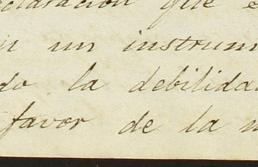 claracion que e
un instrum
do la debilida
favor de la n